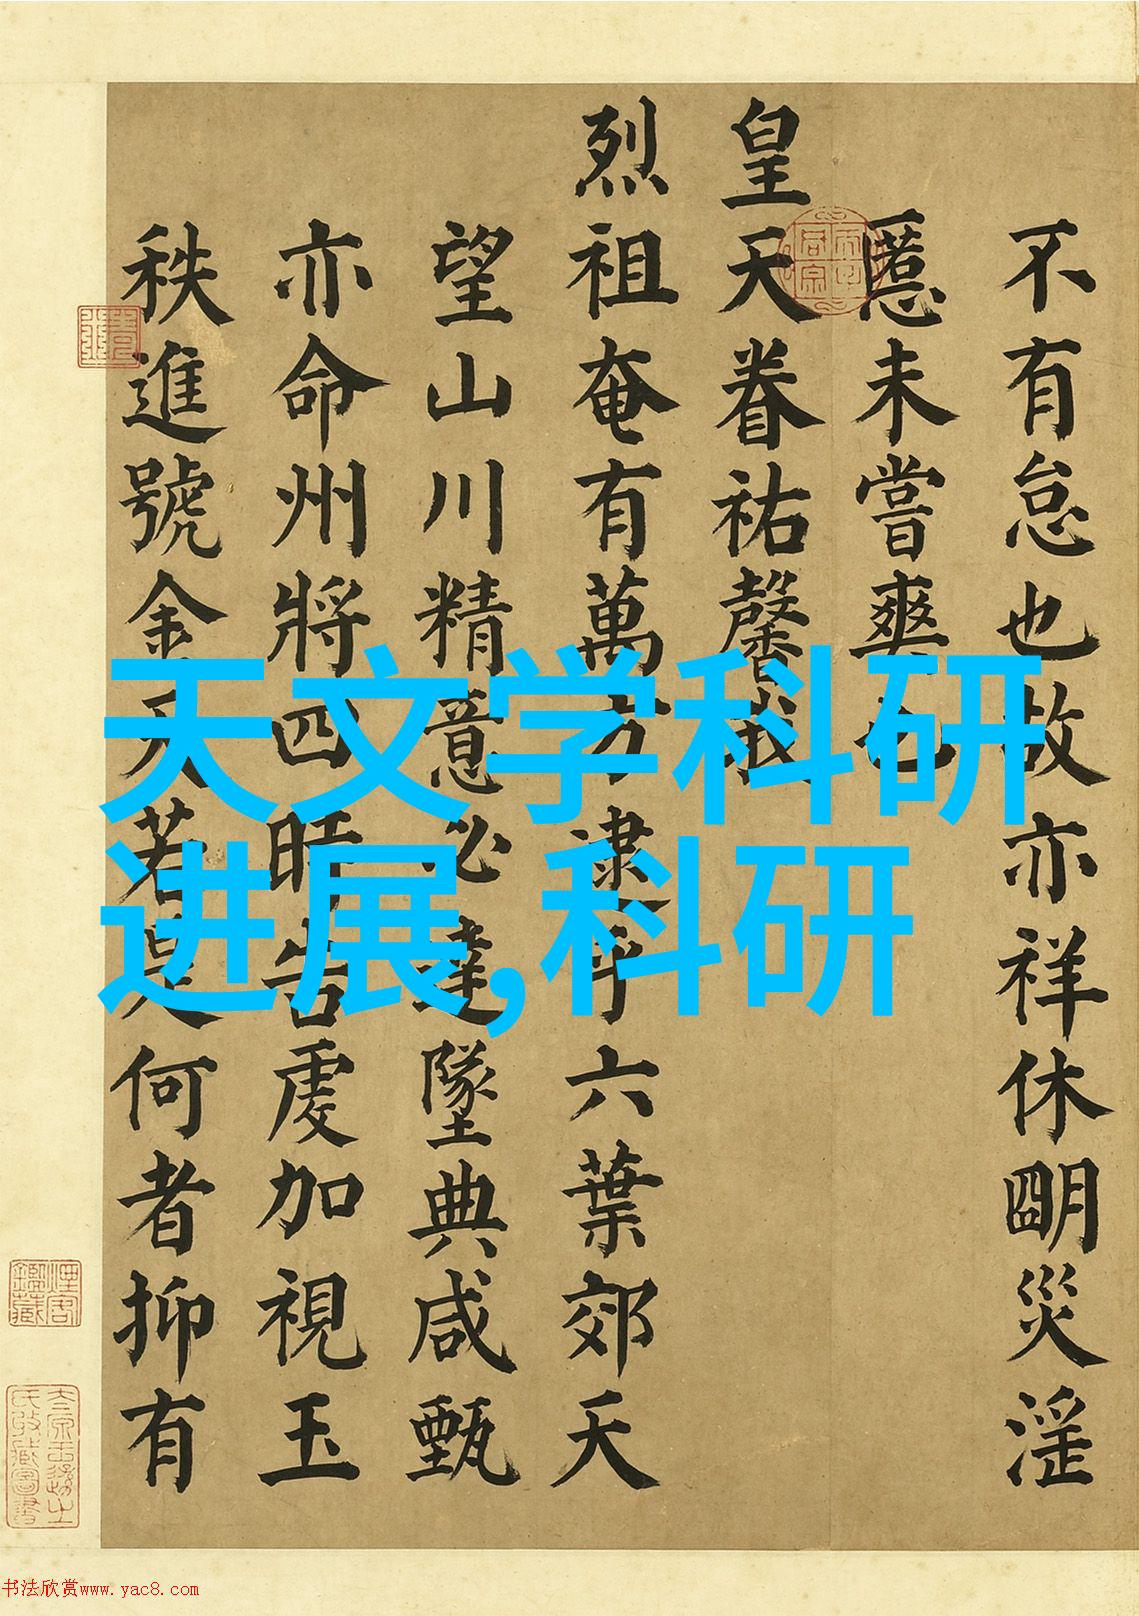 不有怠也故亦祥休朙災淫
慝未嘗爽也
皇天眷祐馨我
烈祖奄有萬方逮乎六葉郊天
望山川精意必達墜典咸甄
亦命州將四時告虔加視玉
秩進號金天若是何者抑有
天文学科研
进展,科研
书法欣赏www.yac8.com